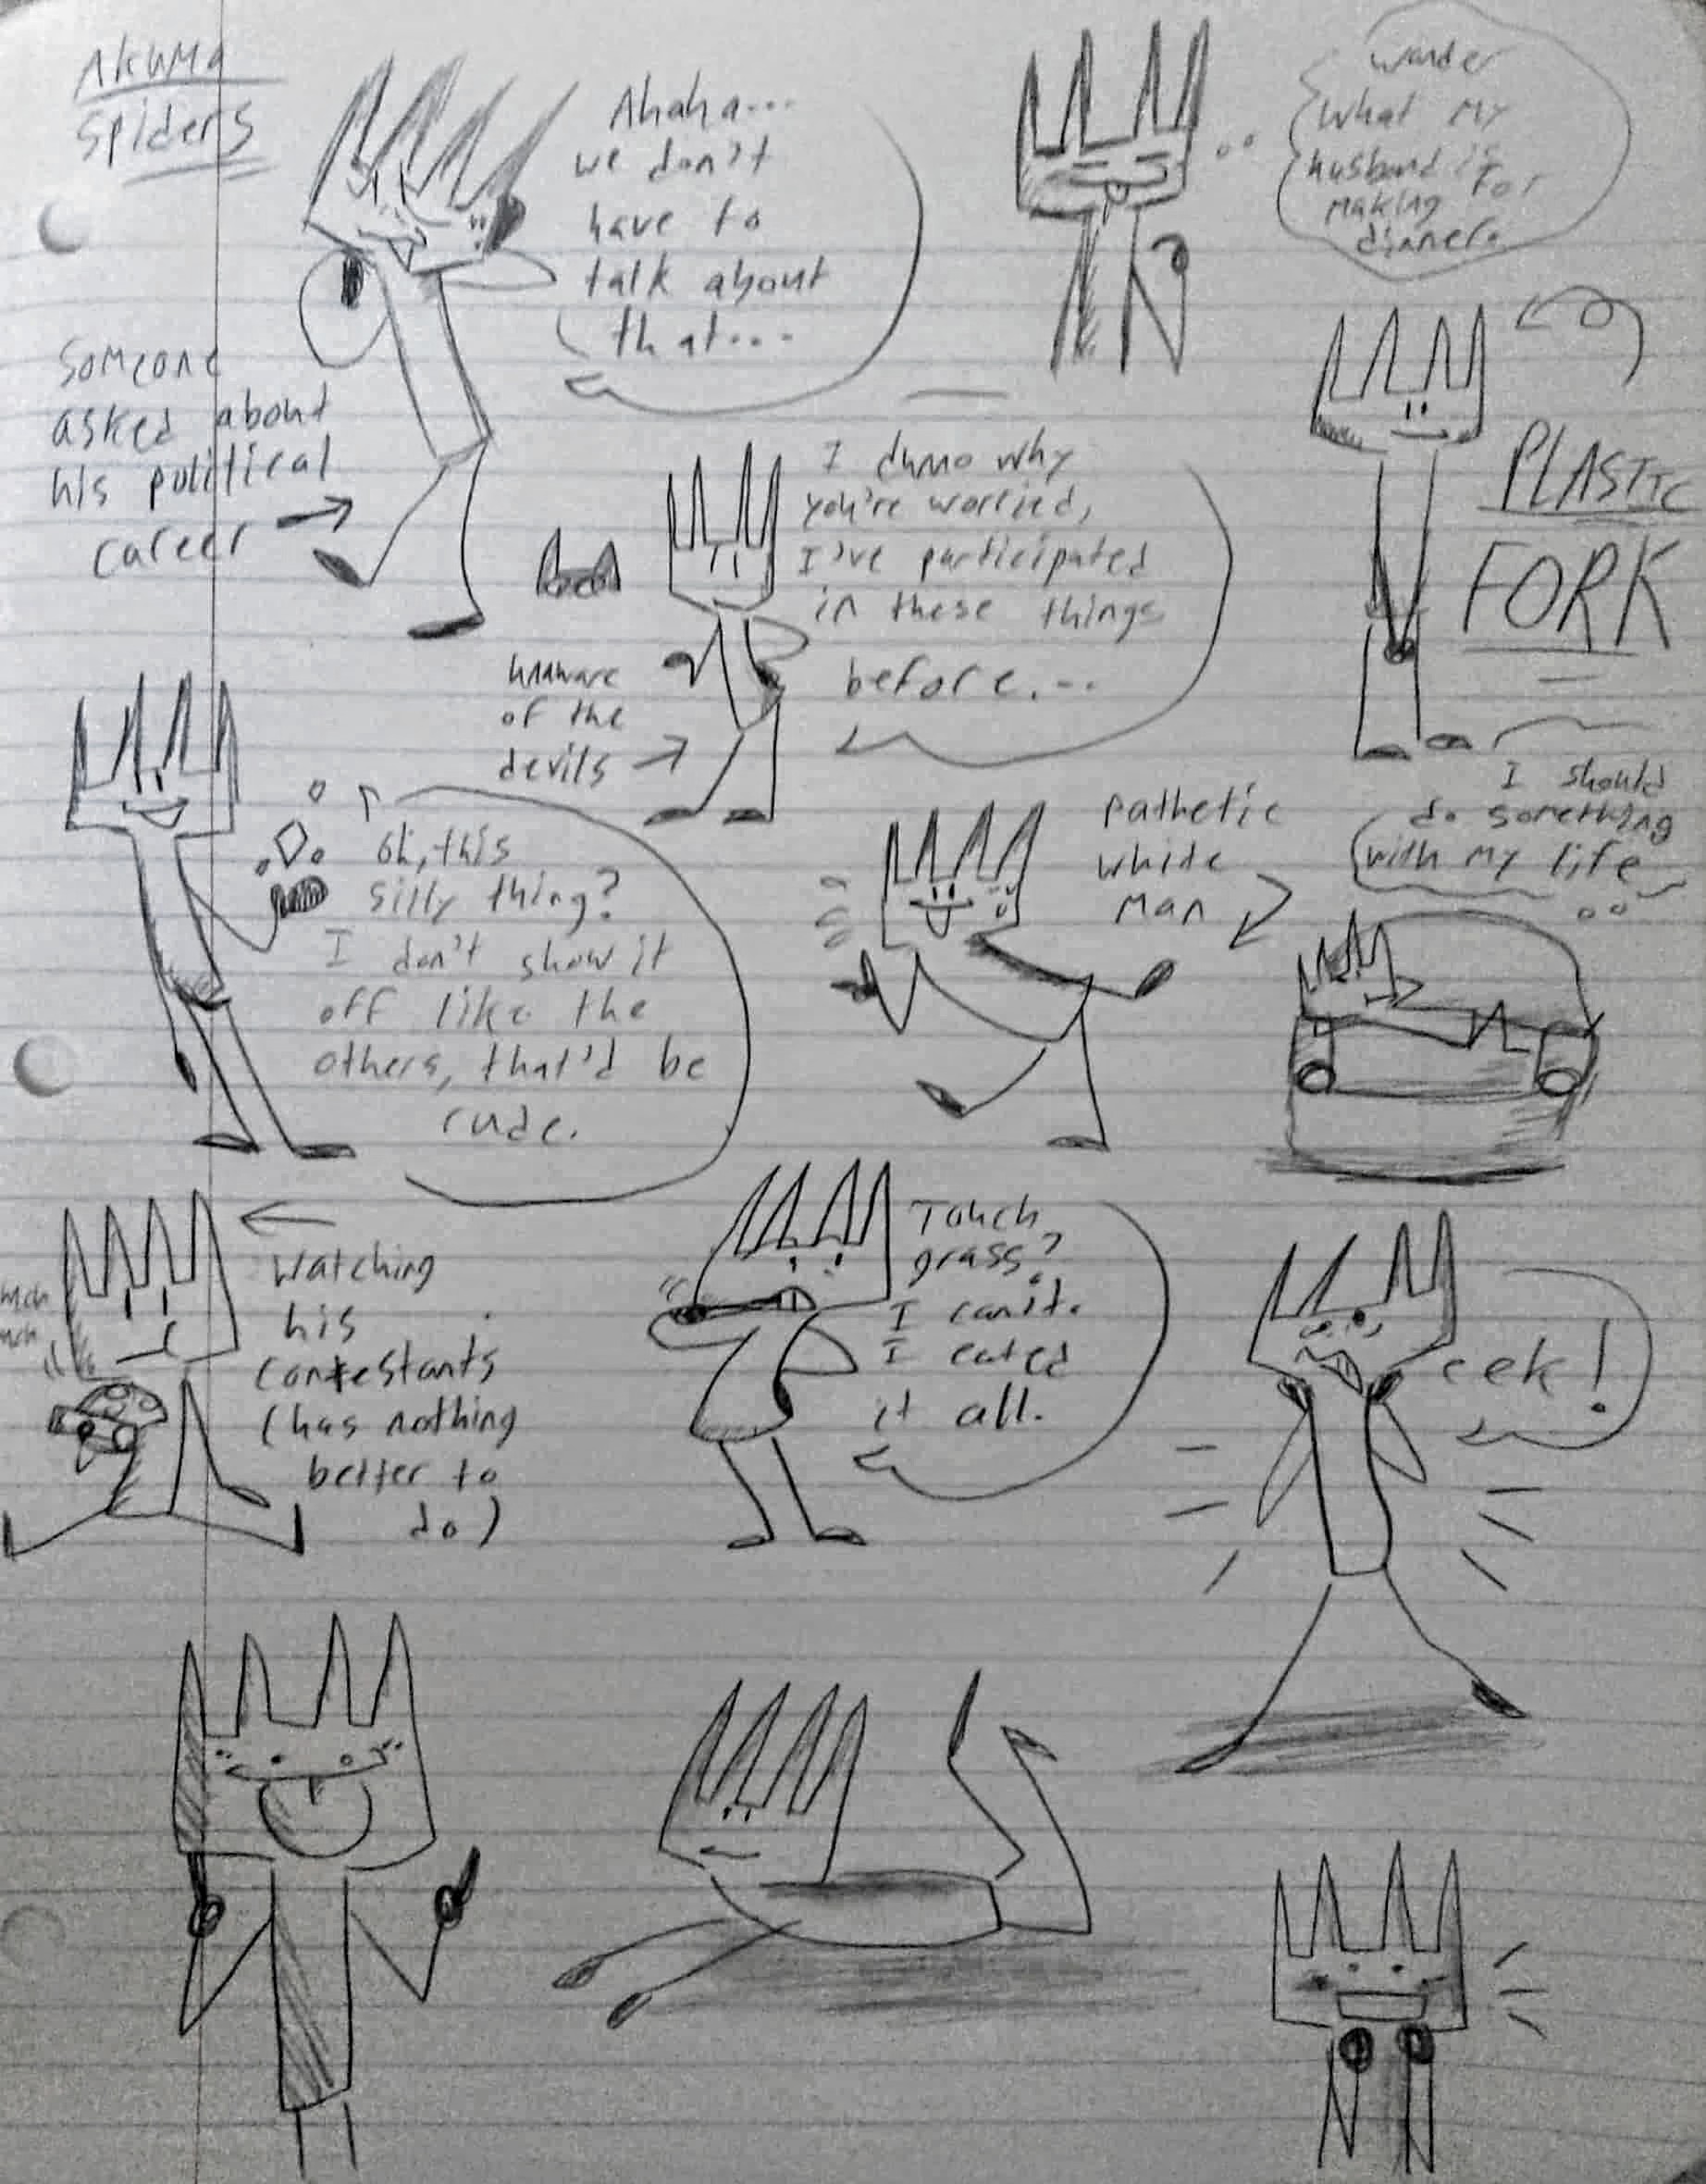 Akuma
spiders
Ahaha...
we don't
have to
talk about
that...
wonder
what my
husband is
making for
dinner.
Someone
asked about
his political
career
I dunno why
you're worried,
I've participated
in these things
before...
unaware
of the
devils
PLASTIC
FORK
Oh, this
silly thing?
I don't show it
off like the
others, that'd be
rude.
pathetic
whide
man
I should
do something
with my life
Watching
his
contestants
(has nothing
better to
do)
Touch
grass?
I can't.
I eated
it all.
eek!